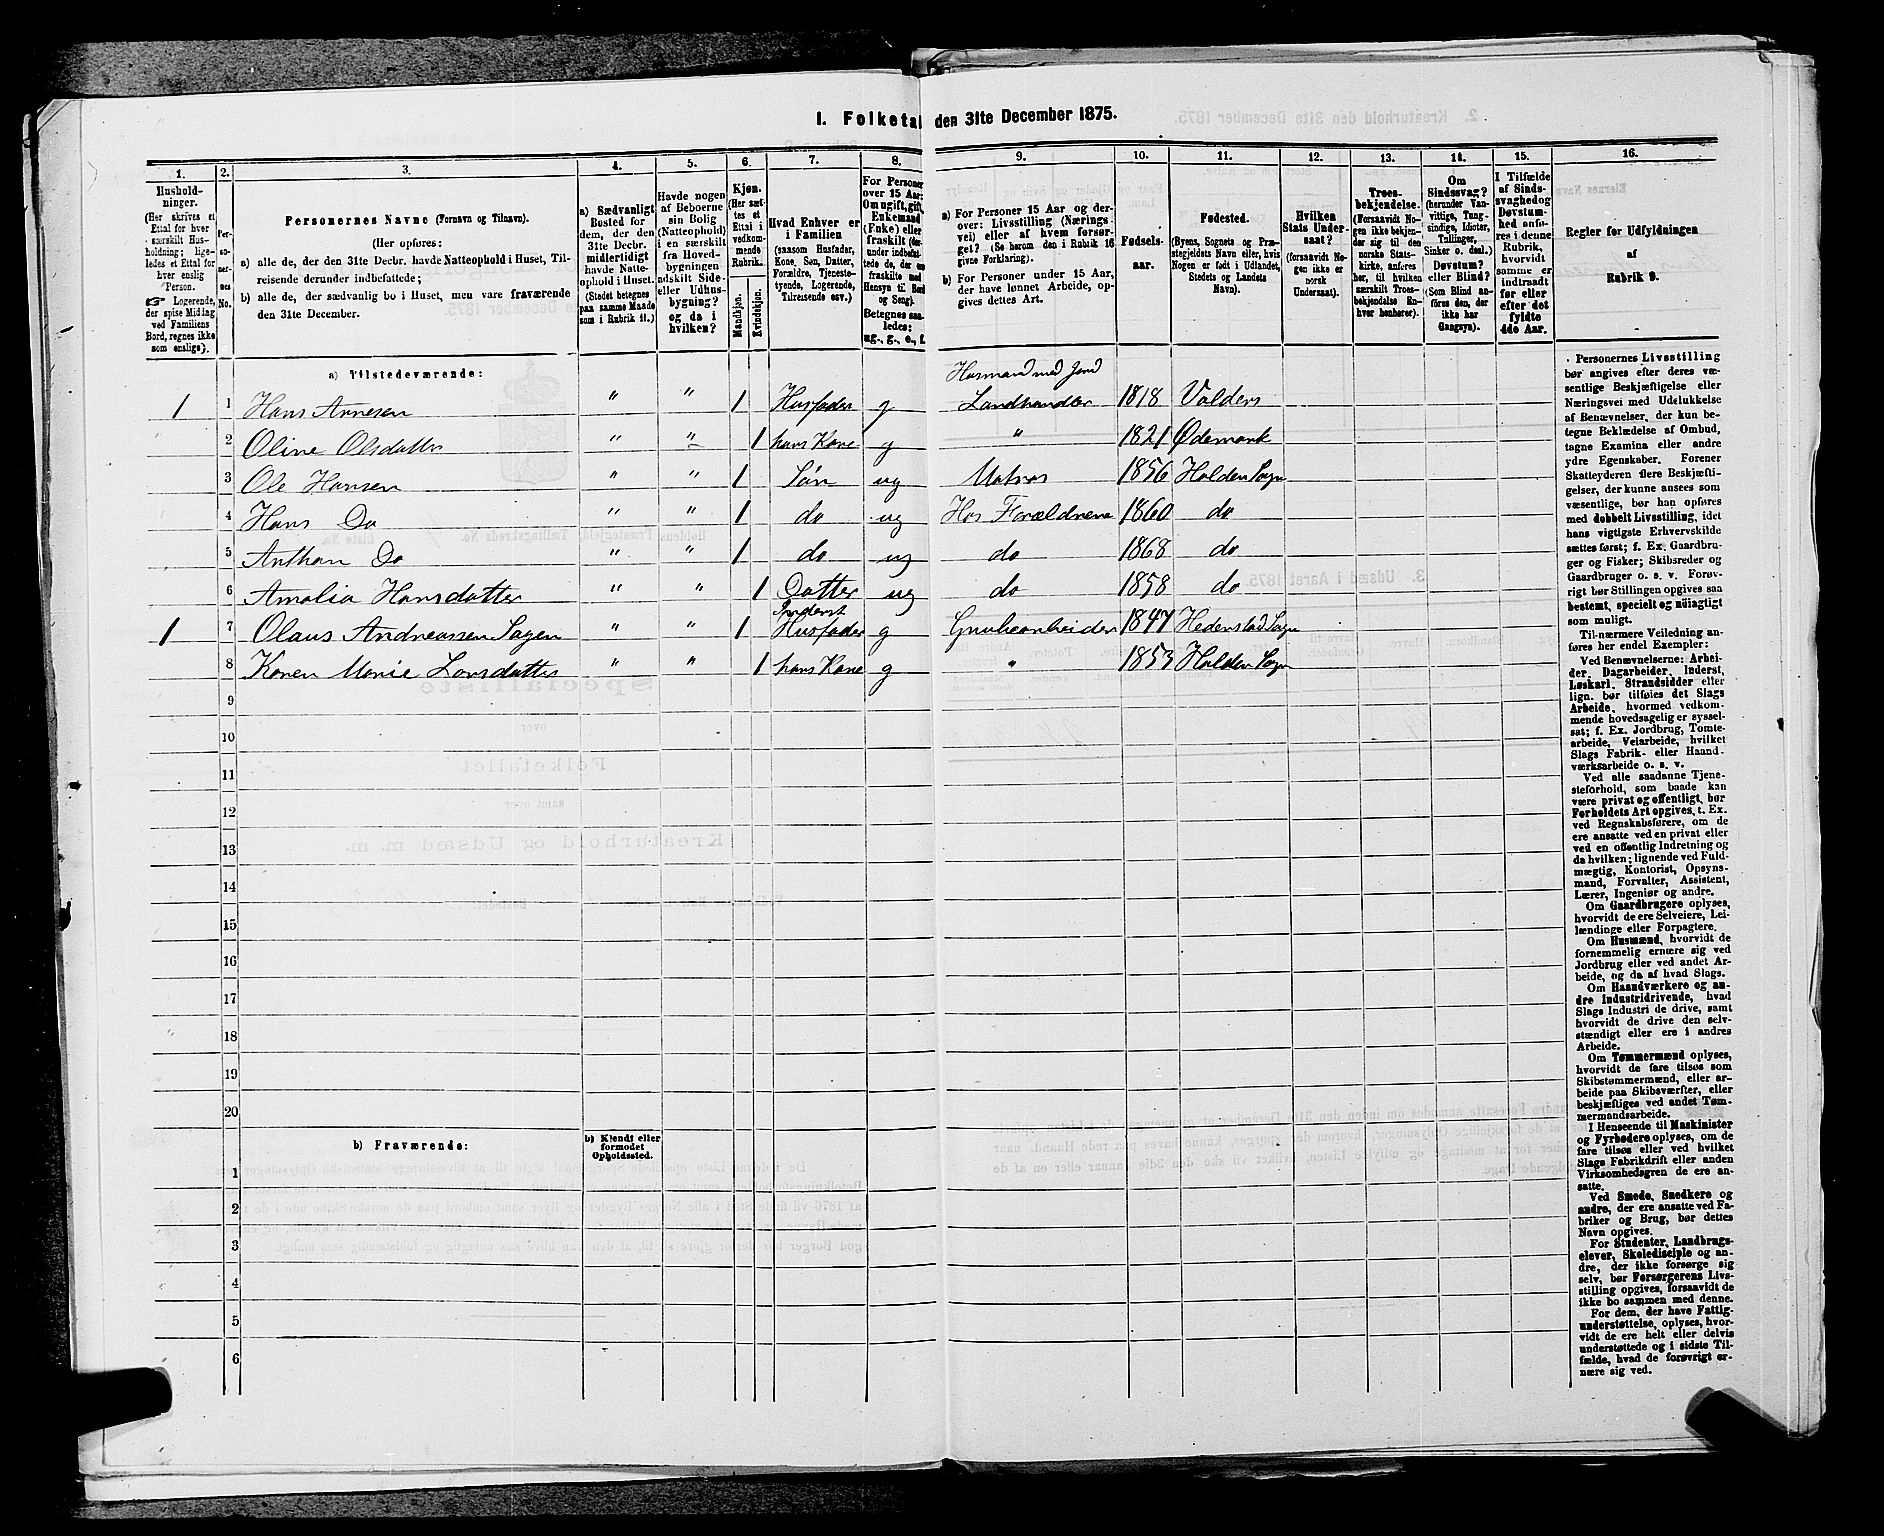 1. Folketal den 31te December 1875.
1. 2. 3. 4. 5. 6. 7. 8. 9. 10. 11. 12. 13. 14. 15. 16.
Hushold-
ninger.
(Her skrives et
Ettal for hver
særskilt Hus-
holdning; lige-
ledes et Ettal for
hver enslig
Person.
Logerende,
der spise Middag
ved Familiens
Bord, regnes ikke
som enslige).
Per-
so-
ner-
nes
No.
Personernes Navne (Fornavn og Tilnavn).
(Her opføres:
a) alle de, der den 31te Decbr. havde Natteophold i Huset, Til-
reisende derunder indbefattede;
b) alle de, der sædvanlig bo i Huset, men vare fraværende
den 31te December.
a) Sædvanligt
Bosted for
dem, der den
31te Decbr.
midlertidigt
havde Natte-
ophold i Huset.
(Stedet betegnes
paa samme Maade
som i Rubrik 11.)
Havde nogen
af Beboerne
sin Bolig
(Natteophold)
i en særskilt
fra Hoved-
bygningen
adskilt Side-
eller Udhus-
bygning?
og da i
hvilken?
Kjøn.
(Her sæt-
tes et
Ettal i
vedkom-
mende
Rubrik.)
Mandkjøn.
Kvindekjøn.
Hvad Enhver er
i Familien
(saasom Husfader,
Kone, Søn, Datter,
Forældre, Tjeneste-
tyende, Logerende,
Tilreisende osv.)
For Personer
over 15 Aar:
Om ugift, gift,
Enkemand
(Enke) eller
fraskilt
Betegnes saa-
ledes:
ug., g., e., f.
a) For Personer 15 Aar og der-
over: Livsstilling (Nærings-
vei) eller af hvem forsør-
get? (Se herom den i Rubrik 16
givne Forklaring).
b) For Personer under 15 Aar,
der have lønnet Arbeide, op-
gives dettes Art.
Fødsels-
aar.
Fødested.
(Byens, Sognets og Præ-
stegjeldets Navn eller, hvis
Nogen er født i Udlandet,
Stedets og Landets
Navn).
Hvilken
Stats Under-
saat?
(forsaavidt No-
gen ikke er
norsk
Undersaat).
Troes-
bekjendelse.
(Forsaavidt No-
gen ikke bekjen-
der sig til den
norske Stats-
kirke, anføres
her, til hvilken
særskilt Troes-
bekjendelse En-
hver henhører).
Om
Sindssvag?
(herunder Van-
vittige, Tung-
sindige, Idioter,
Tullinger,
Sinker o. desl.)
Døvstum?
eller Blind?
(Som Blind an-
føres den, der
ikke har
Gangsyn).
I Tilfælde
af Sinds-
svaghed og
Døvstum-
hed anfø-
res i denne
Rubrik,
hvorvidt
samme er
indtraadt
før eller
efter det
fyldte
4de Aar.
Regler for Udfyldningen
af
Rubrik 9.
a) Tilstedeværende:
Husmand med Jord
1 1 Hans Arnesen " " 1 Husfader g Landhandler 1818 Valders
2 Oline Olsdatter " " 1 hans Kone g " 1821 Ødemark
3 Ole Hansen " " 1 Søn ug Matros 1856 Holden Sogn
4 Hans Do " " 1 do ug Hos Forældrene 1860 do
5 Anthon Do " " 1 do ug do 1868 do
6 Amalia Hansdatter " " 1 Datter ug do 1858 do
Inderst
1 7 Olaus Andreassen Sagen " " 1 Husfader g Grubearbeider 1847 Hedenstad Sogn
8 Karen Marie Larsdatter " " 1 hans Kone g " 1853 Holden Sogn
9
10
11
12
13
14
15
16
17
18
19
20
b) Fraværende:
b) Kjendt eller
formodet
Opholdssted.
1
2
3
4
5
6
Personernes Livsstilling
bør angives efter deres væ-
sentlige Beskjæftigelse eller
Næringsvei med Udelukkelse
af Benævnelser, der kun be-
tegne Beklædelse af Ombud,
tagne Examina eller andre
ydre Egenskaber. Forener
Skatteyderen flere Beskjæfti-
gelser, der kunne ansees som
væsentlige, bør han opføres
med dobbelt Livsstilling, idet
hans vigtigste Erhvervskilde
sættes først; f. Ex. Gaardbru-
ger og Fisker; Skibsreder og
Gaardbruger o. s. v. Forøv-
rigt bør Stillingen opgives saa
bestemt, specielt og nøiagtigt
som muligt.
Til nærmere Veiledning an-
føres her endel Exempler:
Ved Benævnelserne: Arbei-
der, Dagarbeider, Inderst,
Løskarl, Strandsidder eller
lign. bør tilføies det Slags
Arbeide, hvormed vedkom-
mende hovedsagelig er syssel-
sat; f. Ex. Jordbrug, Tomte-
arbeide, Veiarbeide, hvilket
Slags Fabrik- eller Haand-
værksarbeide o. s. v.
Ved alle saadanne Tjene-
steforhold, som baade kan
være privat og offentligt, bør
Forholdets Art opgives, t. Ex.
ved Regnskabsførere, om de
ere ansatte ved en privat eller
ved en offentlig Indretning og
da hvilken; lignende ved Fuld-
mægtig, Kontorist, Opsyns-
mand, Forvalter, Assistent,
Lærer, Ingeniør og andre.
Om Gaardbrugere oplyses,
hvorvidt de ere Selveiere, Lei-
lændinge eller Forpagtere.
Om Husmænd, hvorvidt de
fornemmelig ernære sig ved
Jordbrug eller ved andet Ar-
beide, og da af hvad Slags.
Om Haandværkere og an-
dre Industridrivende, hvad
Slags Industri de drive, samt
hvorvidt de drive den selv-
stændigt eller ere i andres
Arbeide.
Om Tømmermænd oplyses,
hvorvidt de fare tilsøs som
Skibstømmermænd, eller ar-
beide paa Skibsværfter, eller
beskjæftiges ved andet Tøm-
mermandsarbeide.
I Henseende til Maskinister
og Fyrbødere oplyses, om de
fare tilsøs eller ved hvilket
Slags Fabrikdrift eller anden
Virksomhedsgren de ere an-
satte.
Ved Smede, Snedkere og
andre, der ere ansatte ved Fa-
briker og Brug, bør dettes
Navn opgives.
For Studenter, Landbrugs-
elever, Skoledisciple og an-
dre, der ikke forsørge sig
selv, bør Forsørgerens Livs-
stilling opgives, forsaavidt de
ikke bo sammen med denne.
For dem, der have Fattig-
understøttelse, oplyses, hvor-
vidt de ere helt eller delvis
understøttede og i sidste Til-
fælde, hvad de forøvrigt er-
nære sig ved.